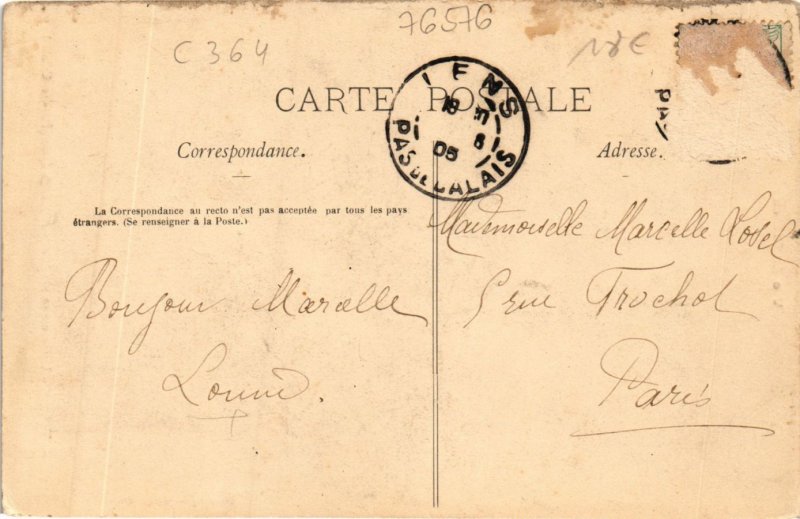 76576
C 364
CARTE POSTALE
LENS
18
05
PAS DE CALAIS
Correspondance.
Adresse.
La Correspondance au recto n'est pas acceptée par tous les pays
étrangers. (Se renseigner à la Poste.)
Mademoiselle Marcelle
5 rue Trochot
Paris
Bonjour Marcelle